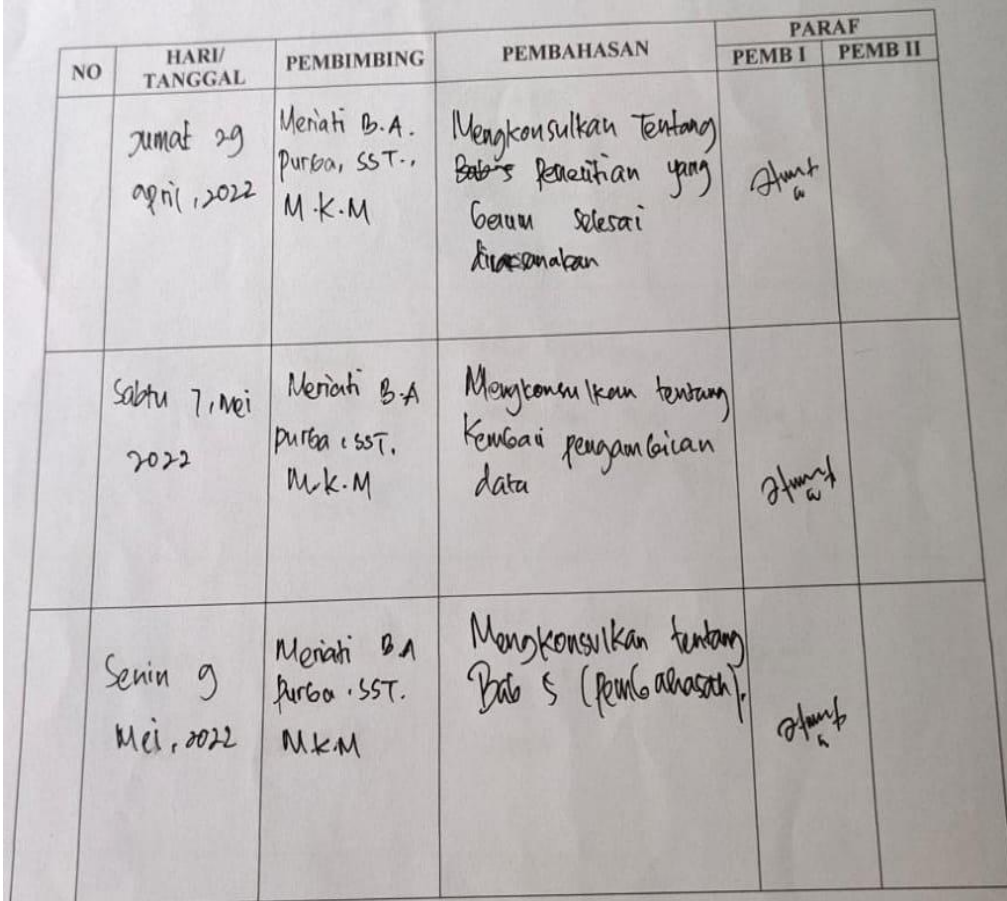 NO
HARI/
TANGGAL
PEMBIMBING
PEMBAHASAN
PARAF
PEMB I
PEMB II
Jumat 29
april, 2022
Meriati B.A.
Purba, SST.,
M.K.M
Mengkonsulkan Tentang
Bab 5 Penelitian yang
belum selesai
dilaksanakan
Sabtu 7, Mei
2022
Meriati B.A
purba, SST.
M.K.M
Mengkonsulkan tentang
Kembali pengambilan
data
Senin 9
Mei, 2022
Meriati B.A
Purba. SST.
M.K.M
Mengkonsulkan tentang
Bab 5 (Pembahasan).